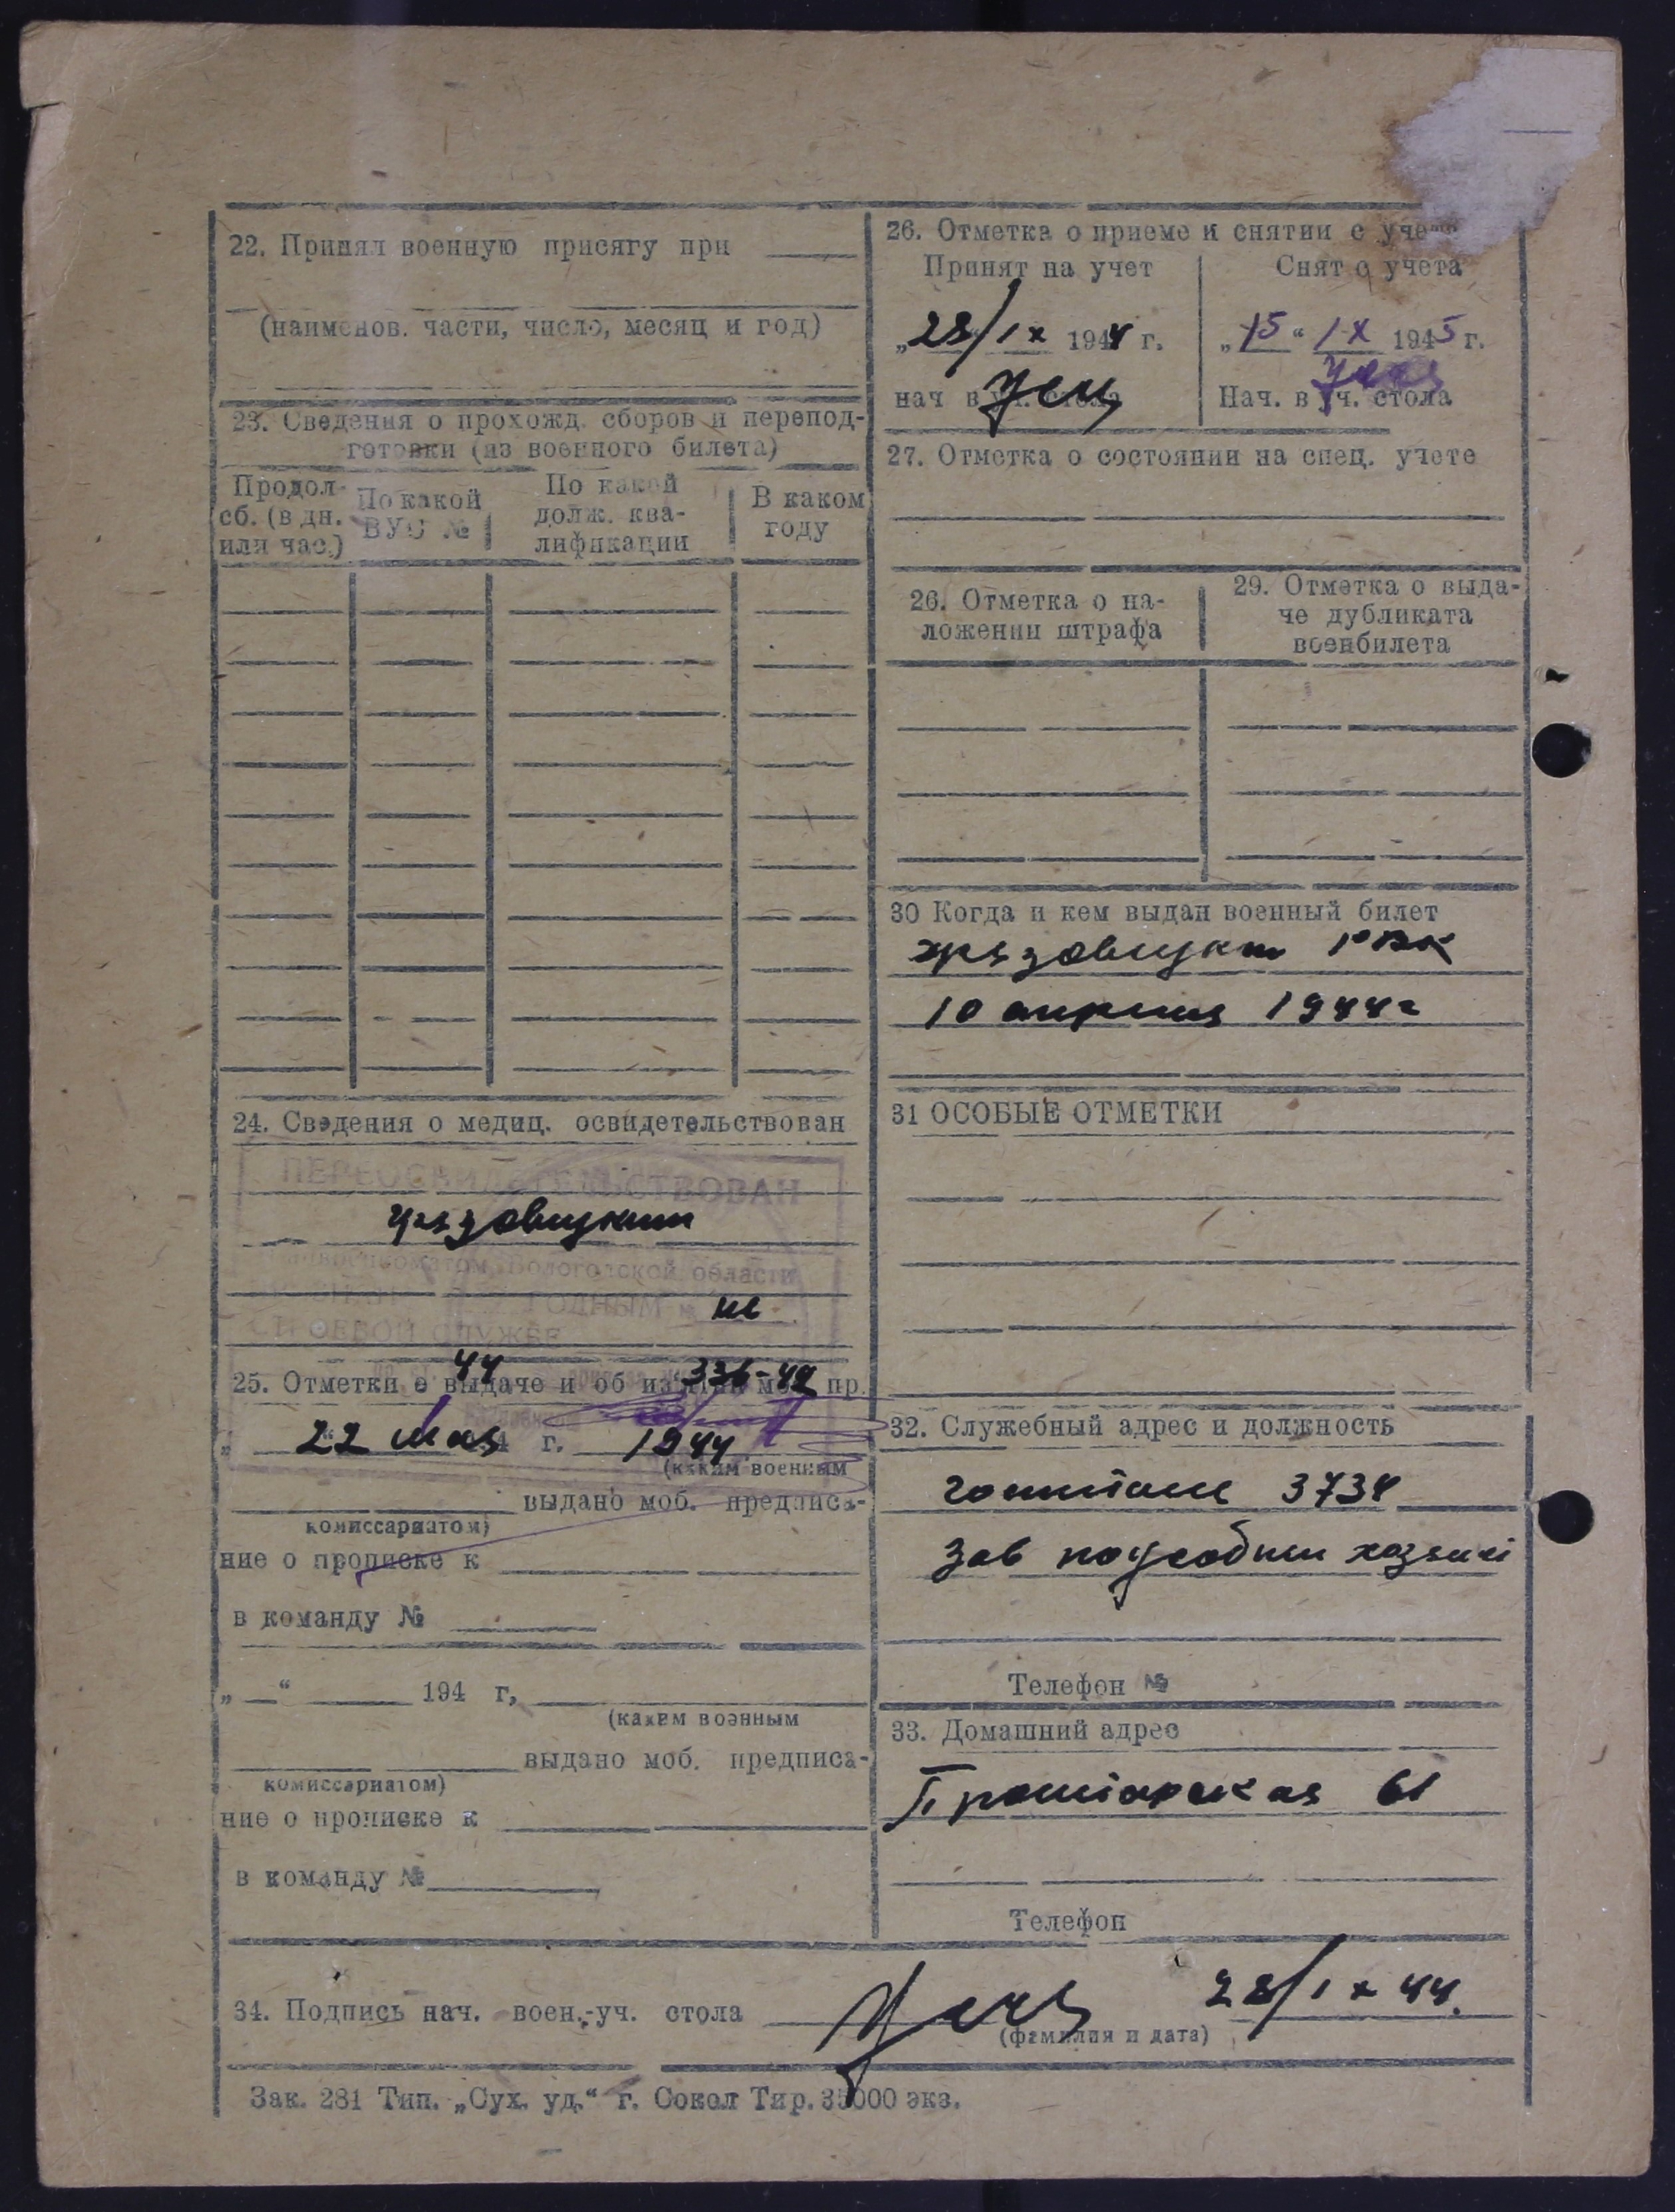 22. Принял военную присягу при
(наименов. части, число, месяц и год)
23. Сведения о прохожд. сборов и перепод-
готовки (из военного билета)
Продол-
сб. (в дн.
или час.)
По какой
ВУС №
По какой
долж. ква-
лификации
В каком
году
24. Сведения о медиц. освидетельствован
ПЕРЕОСВИДЕТЕЛЬСТВОВАН
Грязовецким
райвоенкоматом, Вологодской области
ГОДНЫМ не
СТРОЕВОЙ СЛУЖБЕ
44 336-42
25. Отметки о выдаче и об из'ятии моб. пр.
22 мая г. 1944
(каким военным
выдано моб. предписа-
комиссариатом)
ние о прописке к
в команду №
„ “ 194 г,
(каким военным
выдано моб. предписа-
комиссариатом)
ние о прописке к
в команду №
26. Отметка о приеме и снятии с учета
Принят на учет
„28/IX 1944 г.
нач в уч. стола
Снят с учета
„15“ IX 1945 г.
Нач. в уч. стола
27. Отметка о состоянии на спец. учете
26. Отметка о на-
ложении штрафа
29. Отметка о выда-
че дубликата
военбилета
30 Когда и кем выдан военный билет
Грязовецким РВК
10 апреля 1944г
31 ОСОБЫЕ ОТМЕТКИ
32. Служебный адрес и должность
госпиталь 3734
Зав подсобным хозяй
Телефон №
33. Домашний адрес
Пролетарская 61
Телефон
34. Подпись нач. воен.-уч. стола 28/IX 44.
(фамилия и дата)
Зак. 281 Тип. „Сух. уд.“ г. Сокол Тир. 35000 экз.